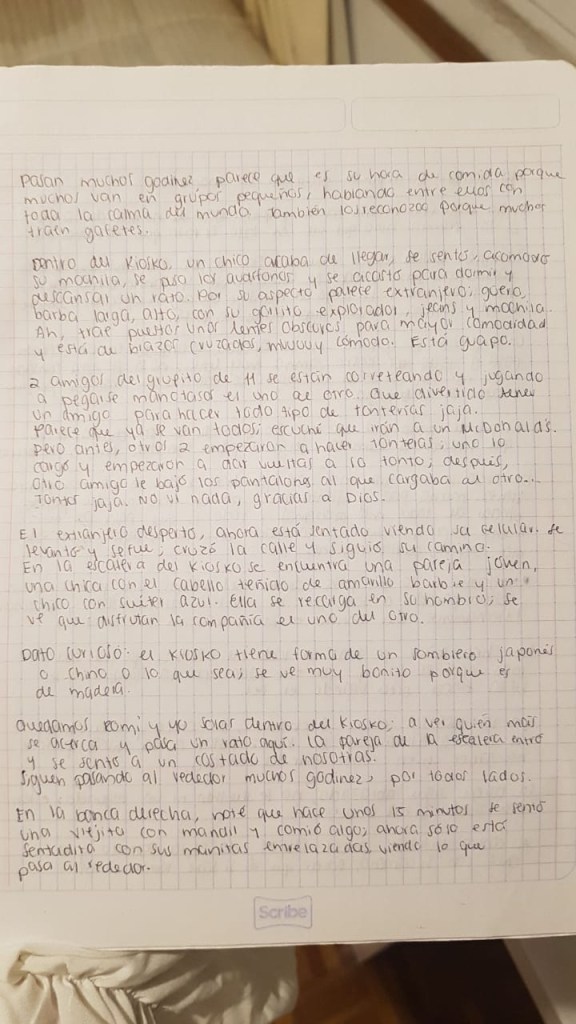 Pasan muchos godinez, parece que es su hora de comida porque
muchos van en grupos pequeños, hablando entre ellos con
toda la calma del mundo. También los reconozco porque muchos
traen gafetes.
Dentro del Kiosko, un chico acaba de llegar, se sentó, acomodó
su mochila, se puso los audífonos y se acostó para dormir y
descansar un rato. Por su aspecto parece extranjero; güero,
barba larga, alto, con su gorrito explorador, jeans y mochila.
Ah, trae puestos unos lentes obscuros para mayor comodidad
y está de brazos cruzados, muuuy cómodo. Está guapo.
2 amigos del grupito de 11 se están correteando y jugando
a pegarse manotasos el uno al otro. Que divertido tener
un amigo para hacer todo tipo de tonterías jaja.
Parece que ya se van todos; escuché que irán a un McDonald's.
Pero antes, otros 2 empezaron a hacer tonteras; uno lo
cargó y empezaron a dar vueltas a lo tonto; después,
otro amigo le bajó los pantalones al que cargaba al otro...
Tontos jaja. No vi nada, gracias a Dios.
El extranjero despertó, ahora está sentado viendo su celular. Se
levantó y se fue; cruzó la calle y siguió su camino.
En la escalera del Kiosko se encuentra una pareja joven,
una chica con el cabello teñido de amarillo barbie y un
chico con suéter azul. Ella se recarga en su hombro; se
ve que disfrutan la compañía el uno del otro.
Dato curioso: el Kiosko tiene forma de un sombrero japonés
o chino o lo que sea; se ve muy bonito porque es
de madera.
Quedamos Romi y yo solas dentro del Kiosko; a ver quién más
se acerca y pasa un rato aquí. La pareja de la escalera entró
y se sentó a un costado de nosotras.
Siguen pasando al rededor muchos godinez, por todos lados.
En la banca derecha, noté que hace unos 15 minutos se sentó
una viejita con mandil y comió algo; ahora sólo está
sentadita con sus manitas entrelazadas viendo lo que
pasa al rededor.
Scribe